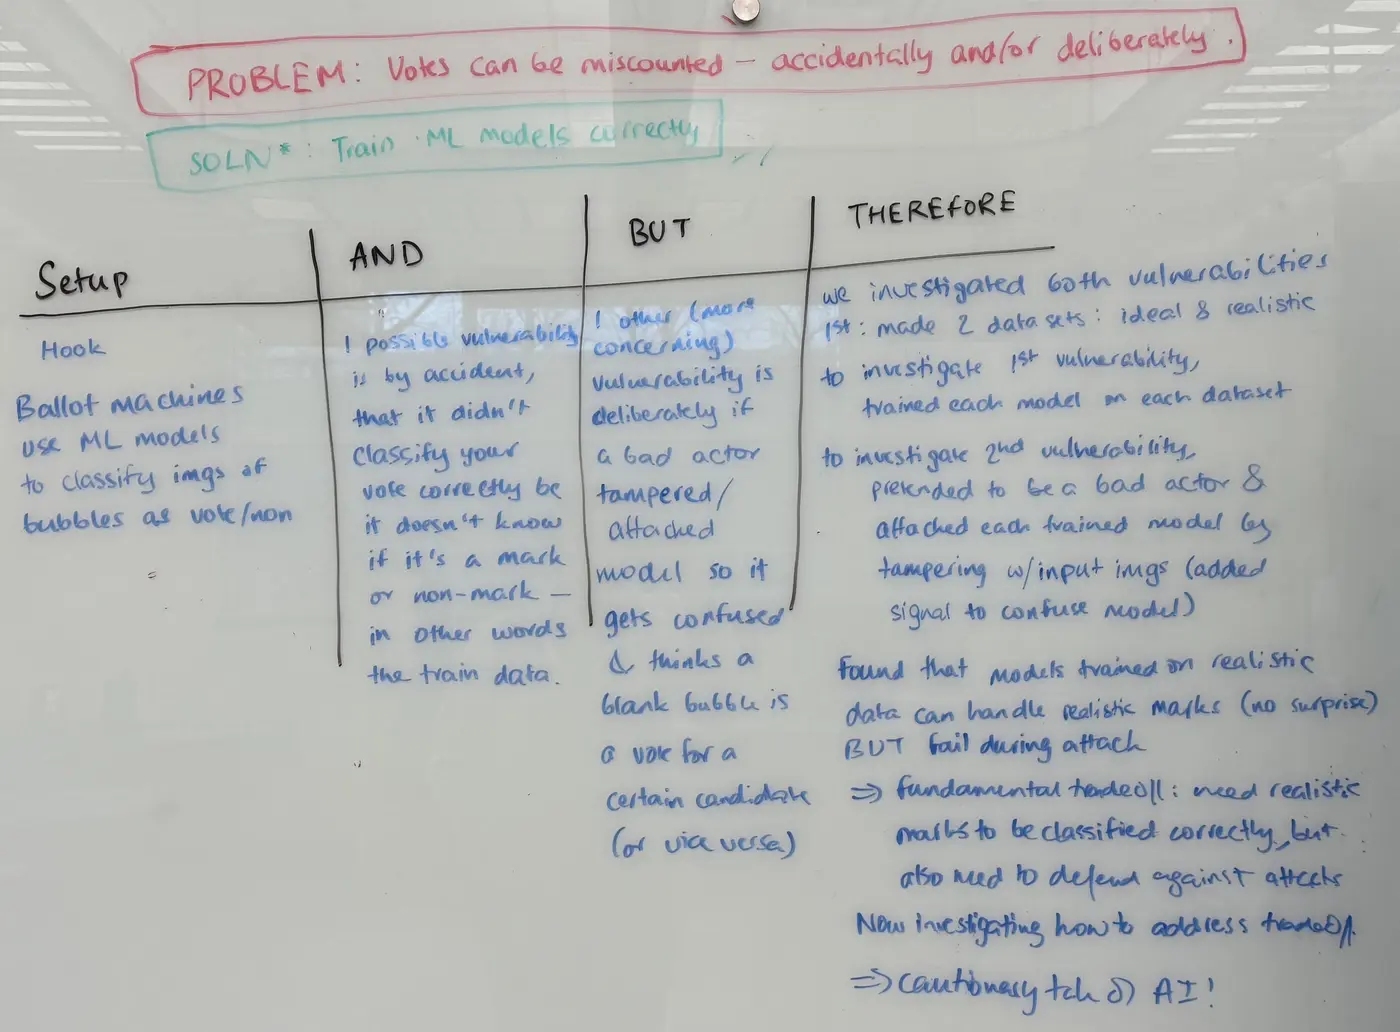 PROBLEM: Votes can be miscounted – accidentally and/or deliberately.
SOLN*: Train ML models correctly
Setup
Hook
Ballot machines
use ML models
to classify imgs of
bubbles as vote/non
AND
1 possible vulnerability
is by accident,
that it didn't
classify your
vote correctly bc
it doesn't know
if it's a mark
or non-mark –
in other words
the train data.
BUT
1 other (more
concerning)
vulnerability is
deliberately if
a bad actor
tampered/
attacked
model so it
gets confused
& thinks a
blank bubble is
a vote for a
certain candidate
(or vice versa)
THEREFORE
we investigated both vulnerabilities
1st: made 2 datasets: ideal & realistic
to investigate 1st vulnerability,
trained each model on each dataset
to investigate 2nd vulnerability,
pretended to be a bad actor &
attacked each trained model by
tampering w/input imgs (added
signal to confuse model)
Found that models trained on realistic
data can handle realistic marks (no surprise)
BUT fail during attack
⇒ fundamental tradeoff: need realistic
marks to be classified correctly, but
also need to defend against attacks
Now investigating how to address tradeoff.
⇒ cautionary tale of AI!